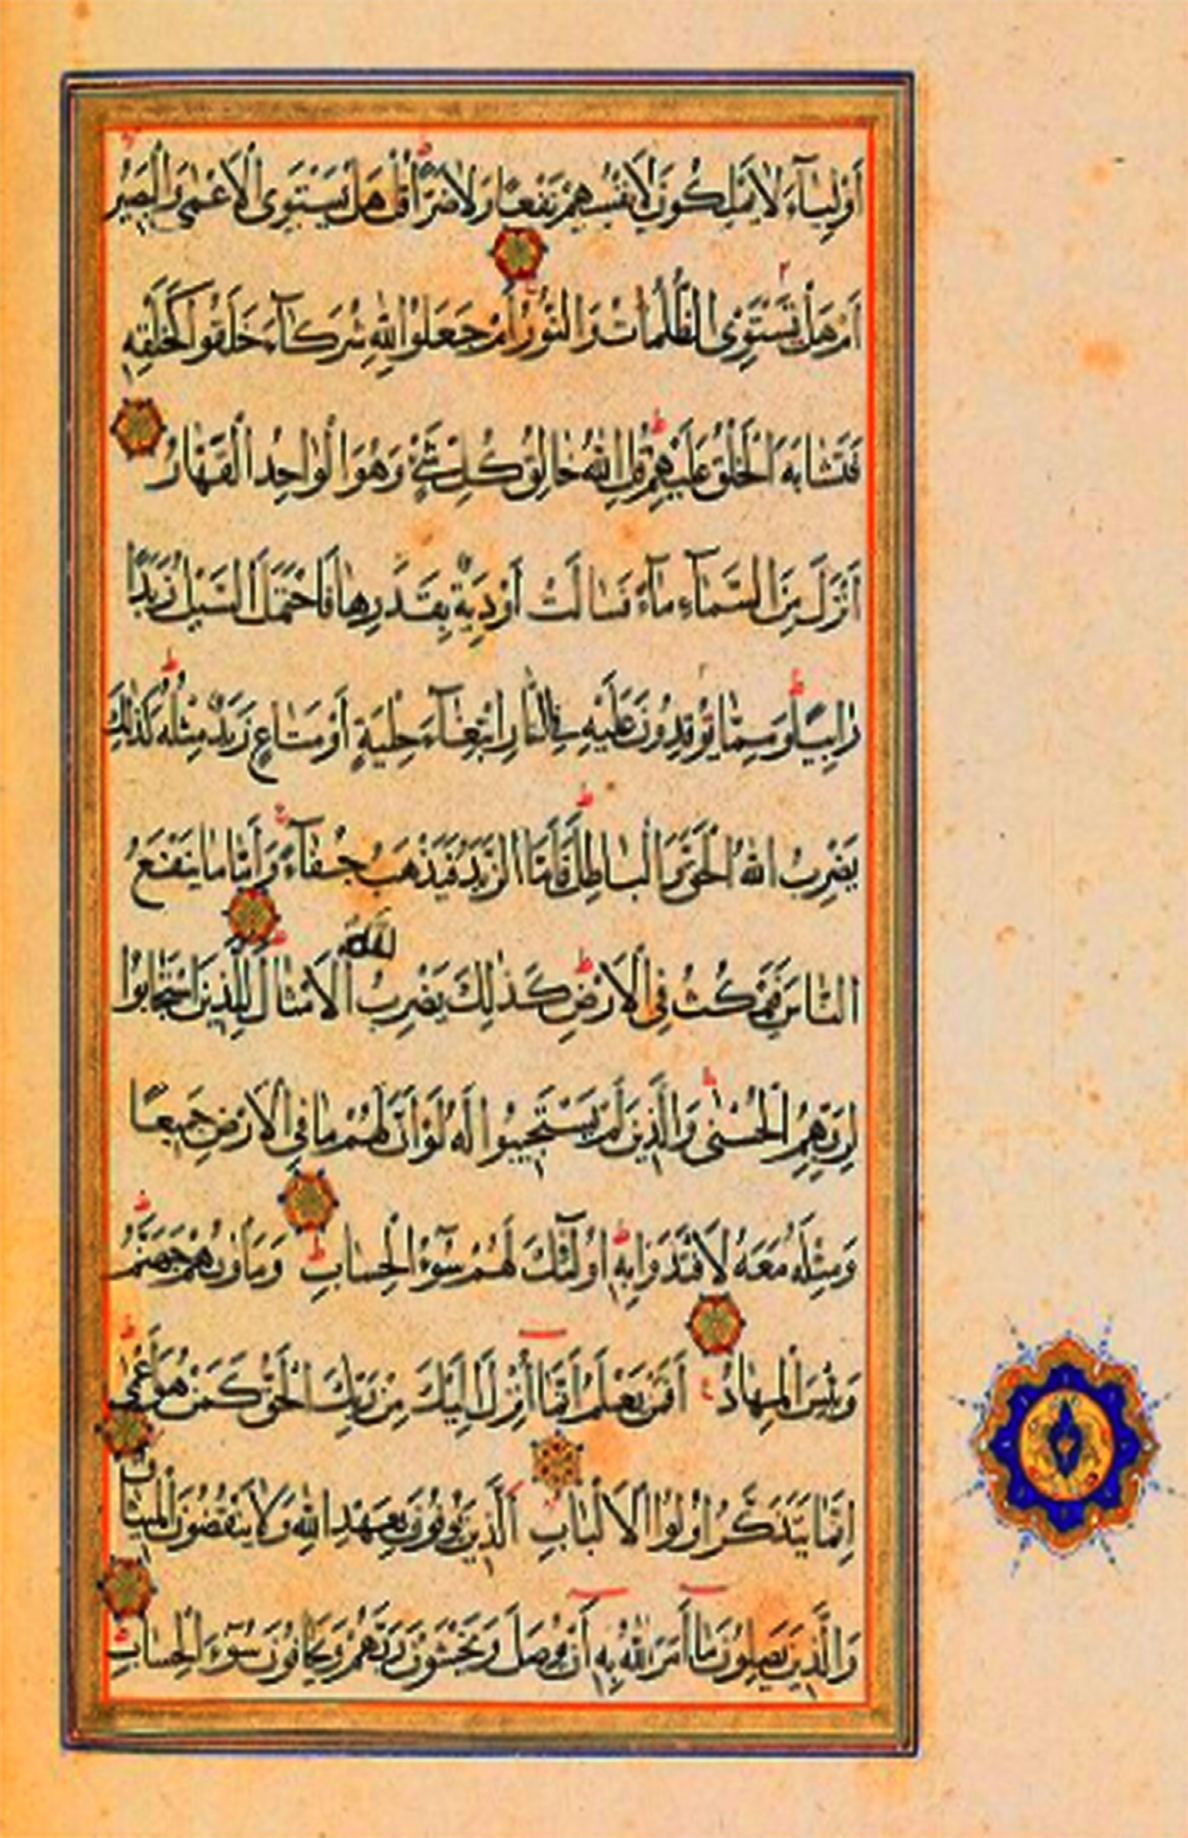 أَوْلِيَآءَ لَا يَمْلِكُونَ لِأَنْفُسِهِمْ نَفْعًا وَلَا ضَرًّا قُلْ هَلْ يَسْتَوِي الْأَعْمٰى وَالْبَصِيرُ
أَمْ هَلْ تَسْتَوِي الظُّلُمَاتُ وَالنُّورُ أَمْ جَعَلُوا لِلّٰهِ شُرَكَآءَ خَلَقُوا كَخَلْقِهِ
فَتَشَابَهَ الْخَلْقُ عَلَيْهِمْ قُلِ اللّٰهُ خَالِقُ كُلِّ شَيْءٍ وَهُوَ الْوَاحِدُ الْقَهَّارُ
أَنْزَلَ مِنَ السَّمَآءِ مَآءً فَسَالَتْ أَوْدِيَةٌ بِقَدَرِهَا فَاحْتَمَلَ السَّيْلُ زَبَدًا
رَابِيًا وَمِمَّا تُوقِدُونَ عَلَيْهِ فِي النَّارِ ابْتِغَآءَ حِلْيَةٍ أَوْ مَتَاعٍ زَبَدٌ مِثْلُهُ كَذٰلِكَ
يَضْرِبُ اللّٰهُ الْحَقَّ وَالْبَاطِلَ فَأَمَّا الزَّبَدُ فَيَذْهَبُ جُفَآءً وَأَمَّا مَا يَنْفَعُ
النَّاسَ فَيَمْكُثُ فِي الْأَرْضِ كَذٰلِكَ يَضْرِبُ اللّٰهُ الْأَمْثَالَ لِلَّذِينَ اسْتَجَابُوا
لِرَبِّهِمُ الْحُسْنٰى وَالَّذِينَ لَمْ يَسْتَجِيبُوا لَهُ لَوْ أَنَّ لَهُمْ مَا فِي الْأَرْضِ جَمِيعًا
وَمِثْلَهُ مَعَهُ لَافْتَدَوْا بِهِ أُولٰٓئِكَ لَهُمْ سُوٓءُ الْحِسَابِ وَمَأْوٰىهُمْ جَهَنَّمُ
وَبِئْسَ الْمِهَادُ أَفَمَنْ يَعْلَمُ أَنَّمَا أُنْزِلَ إِلَيْكَ مِنْ رَبِّكَ الْحَقُّ كَمَنْ هُوَ أَعْمٰى
إِنَّمَا يَتَذَكَّرُ أُولُوا الْأَلْبَابِ الَّذِينَ يُوفُونَ بِعَهْدِ اللّٰهِ وَلَا يَنْقُضُونَ الْمِيثَاقَ
وَالَّذِينَ يَصِلُونَ مَآ أَمَرَ اللّٰهُ بِهِ أَنْ يُوصَلَ وَيَخْشَوْنَ رَبَّهُمْ وَيَخَافُونَ سُوٓءَ الْحِسَابِ